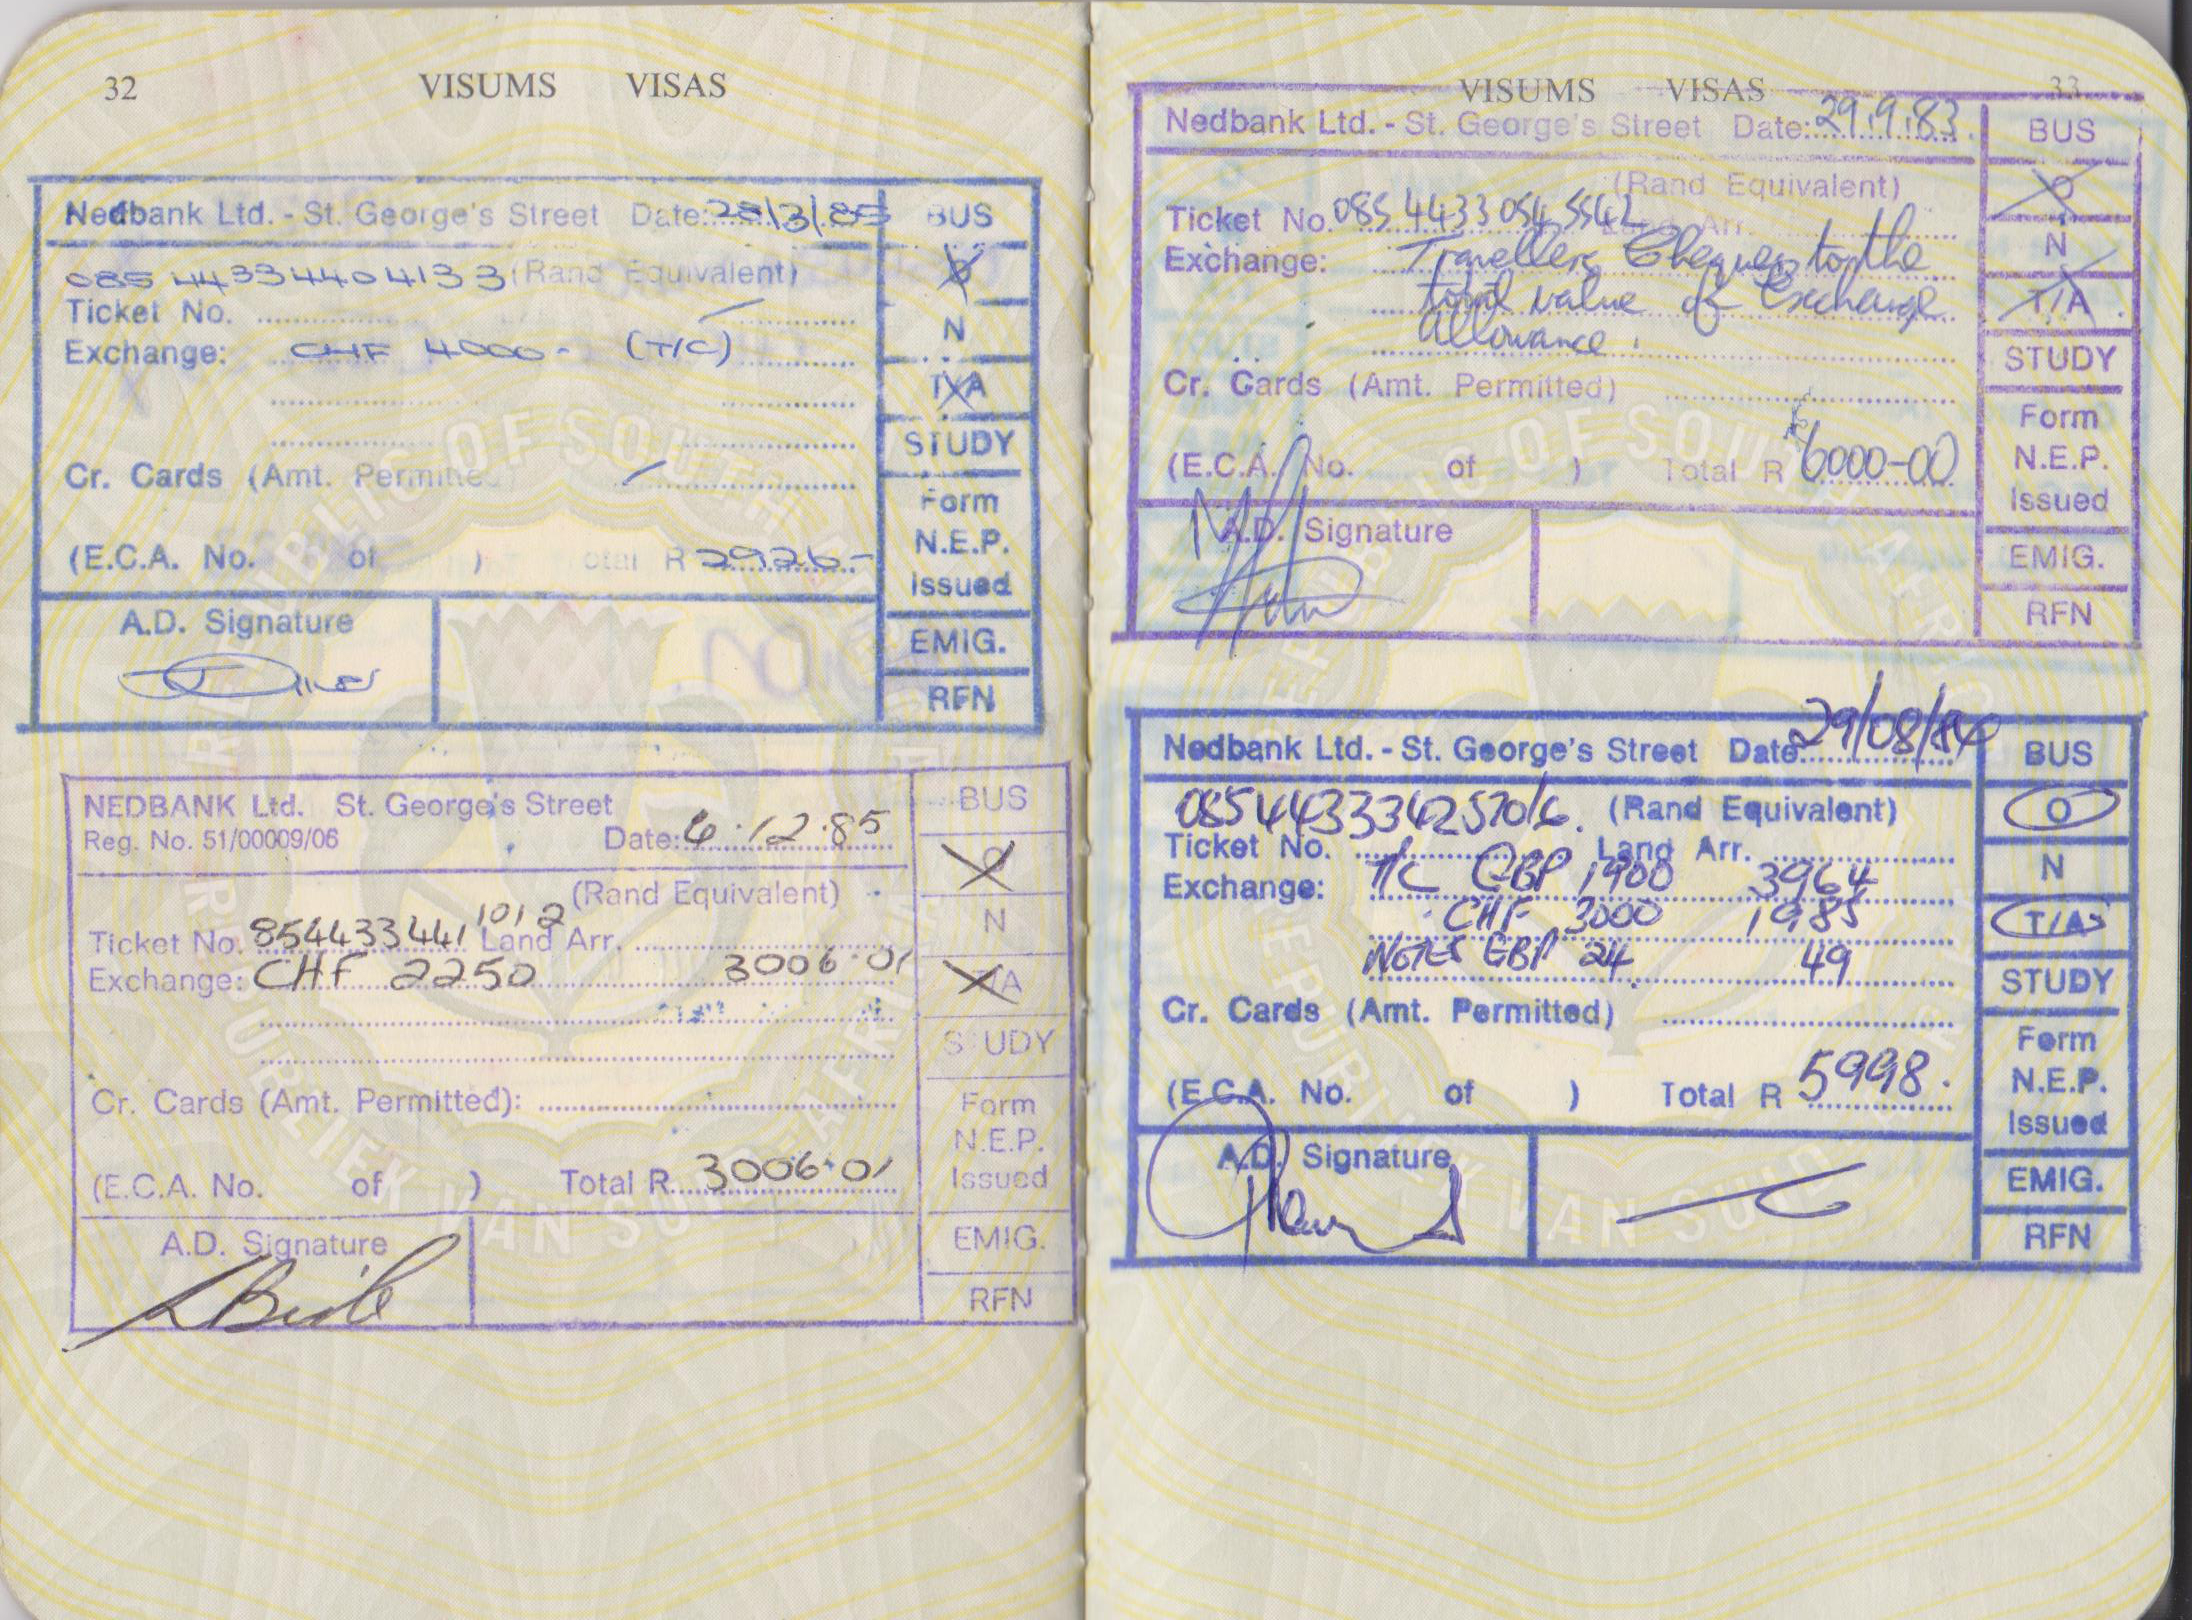 32 VISUMS VISAS
Nedbank Ltd. - St. George's Street Date: 28/3/85 BUS
085 4433440413 3 (Rand Equivalent) O
Ticket No. N
Exchange: CHF 4000- (T/C)
T/A
STUDY
Cr. Cards (Amt. Permitted)
Form
(E.C.A. No. of ) Total R 2926- N.E.P.
Issued
A.D. Signature EMIG.
RFN
NEDBANK Ltd. St. George's Street BUS
Reg. No. 51/00009/06 Date: 6.12.85
O
(Rand Equivalent)
Ticket No. 854433441 1012 Land Arr. N
Exchange: CHF 2250 3006.01 T/A
STUDY
Cr. Cards (Amt. Permitted): Form
N.E.P.
(E.C.A. No. of ) Total R 3006.01 Issued
A.D. Signature EMIG.
RFN
VISUMS VISAS 33
Nedbank Ltd. - St. George's Street Date: 29.9.83 BUS
(Rand Equivalent) O
Ticket No. 085 4433 054 5542 Land Arr.
Exchange: Travellers Cheques to the N
total value of Exchange T/A
Allowance.
STUDY
Cr. Cards (Amt. Permitted)
Form
(E.C.A. No. of ) Total R 6000-00 N.E.P.
Issued
A.D. Signature EMIG.
RFN
Nedbank Ltd. - St. George's Street Date 29/08/84 BUS
(Rand Equivalent) O
Ticket No. Land Arr.
Exchange: T/C GBP 1900 3964 N
CHF 3000 1985 T/A
NOTES GBP 24 49
STUDY
Cr. Cards (Amt. Permitted)
Form
(E.C.A. No. of ) Total R 5998. N.E.P.
Issued
A.D. Signature EMIG.
RFN
REPUBLIC OF SOUTH AFRICA
REPUBLIEK VAN SUID-AFRIKA
REPUBLIC OF SOUTH AFRICA
REPUBLIEK VAN SUID-AFRIKA